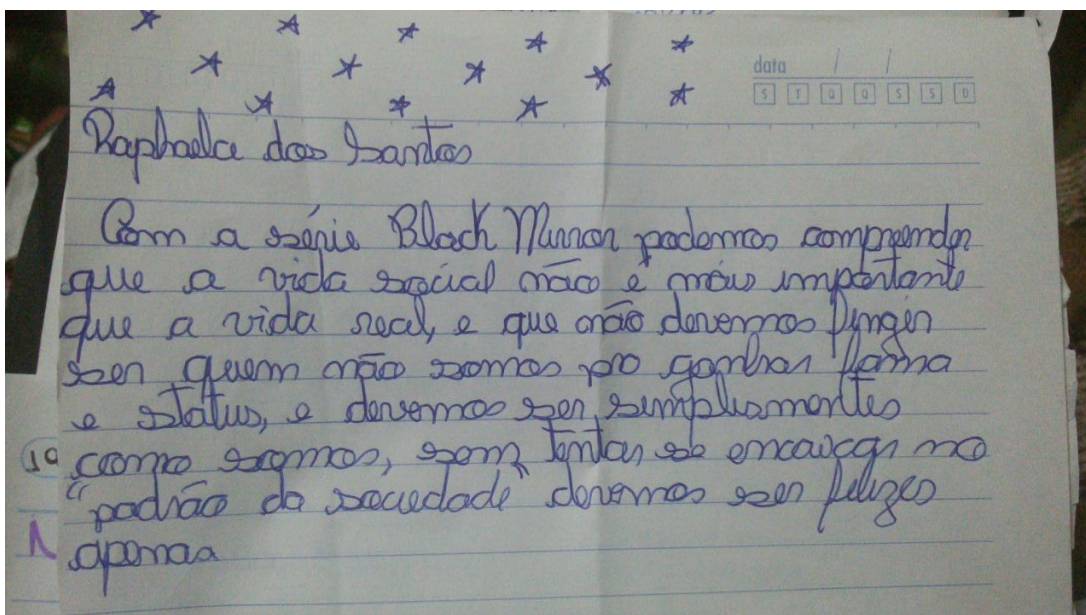 data / /
S T Q Q S S D
Raphaela dos Santos
Com a série Black Mirror podemos compreender
que a vida social não é mais importante
que a vida real, e que não devemos fingir
ser quem não somos pro ganhar fama
e status, e devemos ser simplismentes
como somos, sem tentar se encaixar no
"padrão da sociedade" devemos ser felizes
apenas